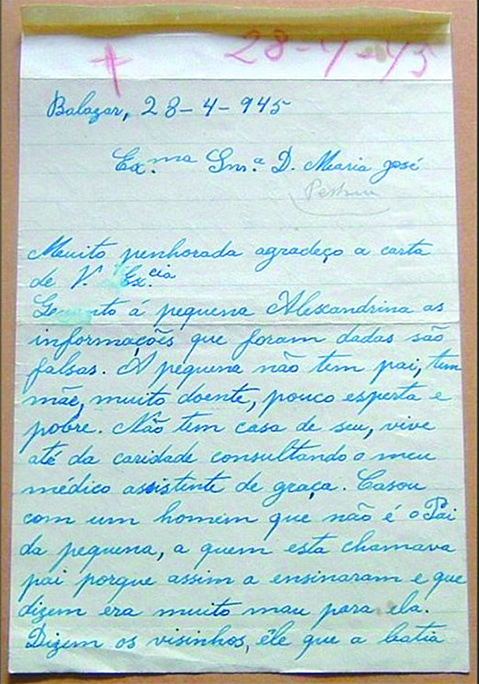 + 28-4-45
Balazar, 28-4-945
Ex.ma Snr.a D. Maria José
Muito penhorada agradeço a carta
de V. Ex.cia
á pequena Alexandrina as
informações que foram dadas são
falsas. A pequena não tem pai, tem
mãe, muito doente, pouco esperta e
pobre. Não tem casa de seu, vive
até da caridade consultando o meu
médico assistente de graça. Casou
com um homem que não é o Pai
da pequena, a quem esta chamava
pai porque assim a ensinaram e que
dizem era muito mau para ela.
Dizem os visinhos, êle que a batia